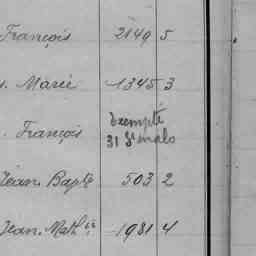 François 2149 5
s. Marie 1345 3
exempté
. François 31 St malo
Jean Bapte 503 2
Jean. Math 1981 4